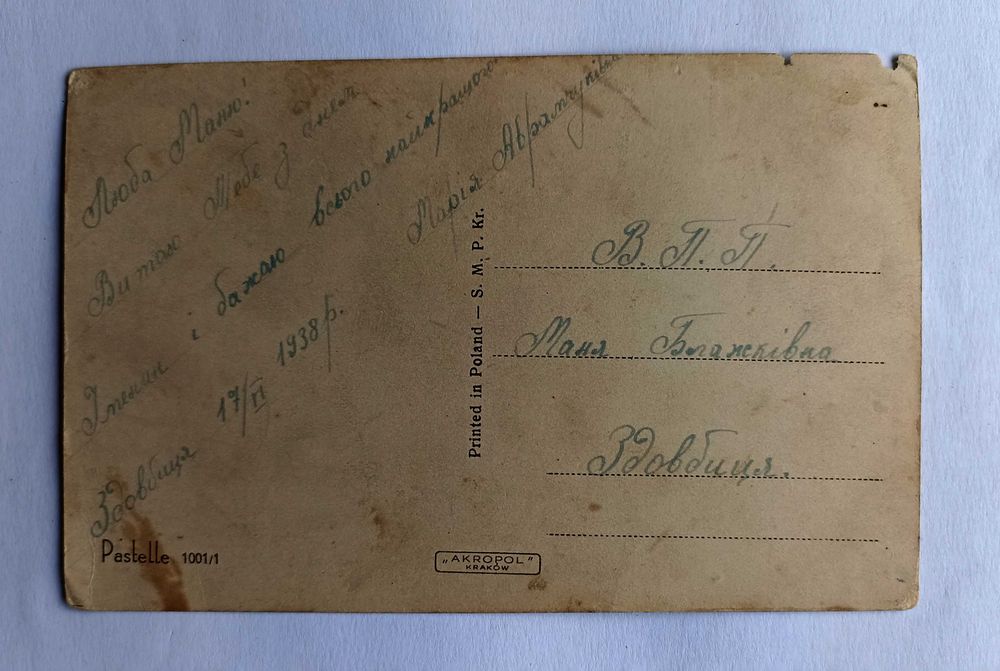 Люба Маню!
Витаю Тебе з днем
Іменин і бажаю всього найкращого
Здовбиця 17/VI 1938р. Марія Абрамчуківна
В. П. П.
Маня Блажківна
Здовбиця.
Printed in Poland — S. M. P. Kr.
Pastelle 1001/1
„AKROPOL”
KRAKÓW